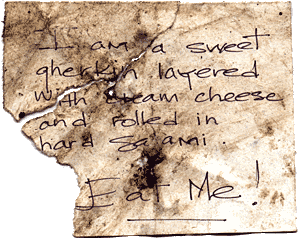 I am a sweet
gherkin layered
with cream cheese
and rolled in
hard salami.
Eat Me!